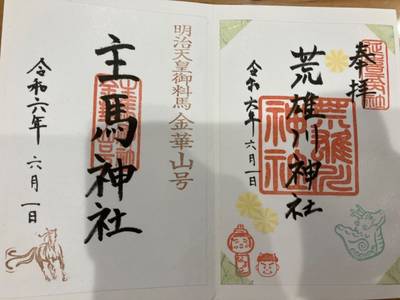 奉拝
荒雄川神社
令和六年 六月一日
明治天皇御料馬 金華山号
主馬神社
令和六年 六月一日